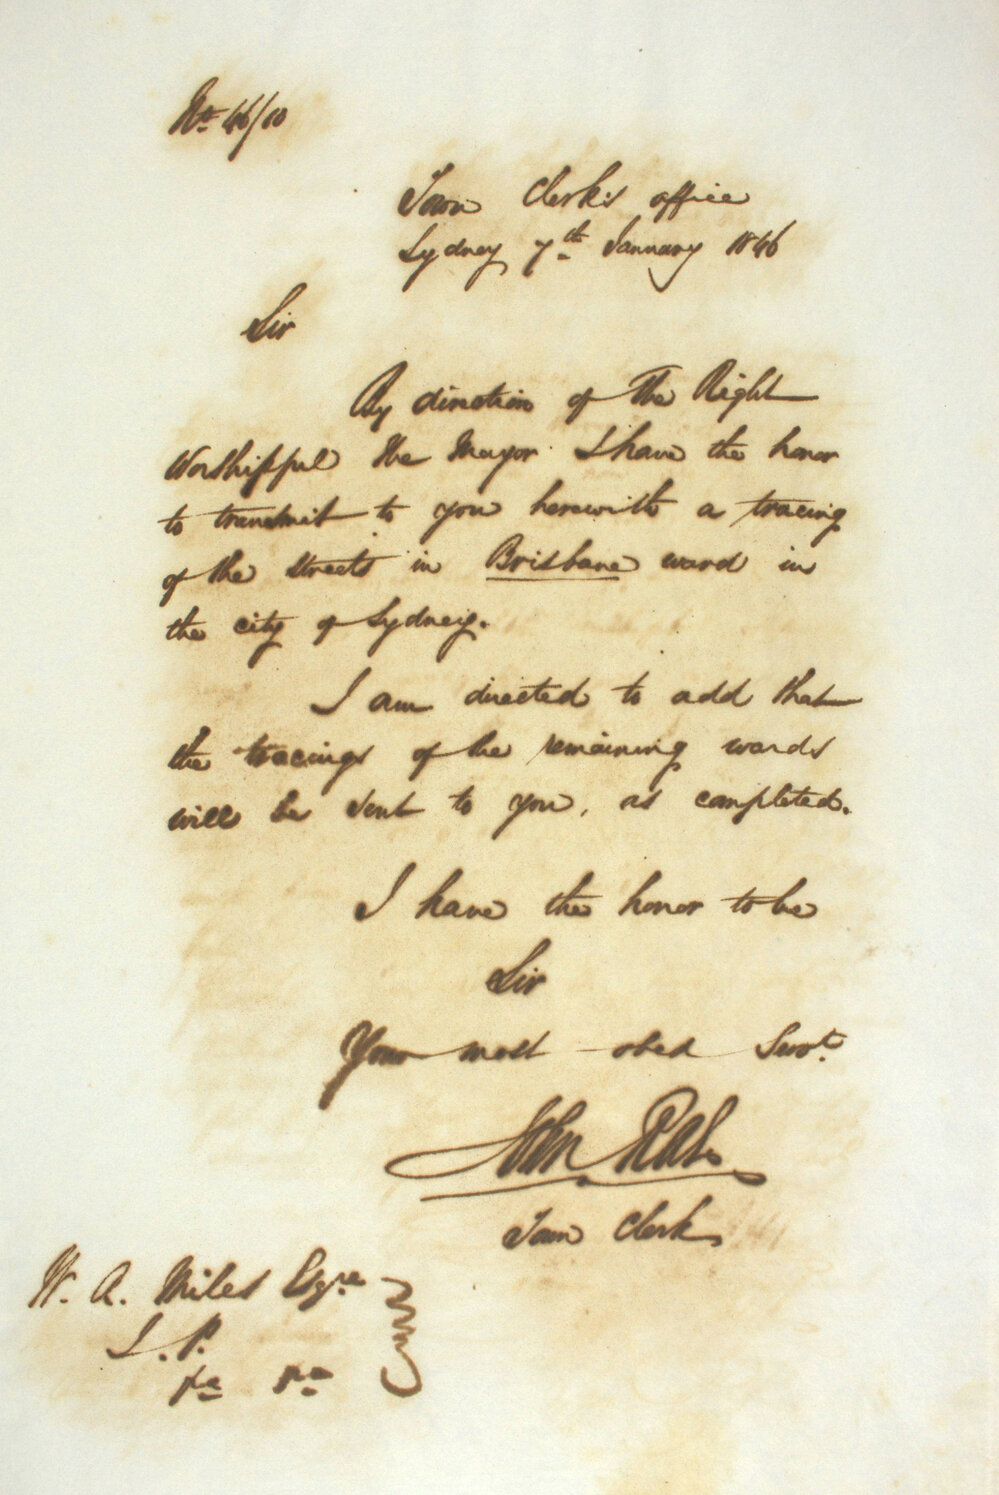 No 46/10
Town Clerk's office
Sydney 7th January 1846
Sir
By direction of The Right
Worshipful the Mayor I have the honor
to transmit to you herewith a tracing
of the streets in Brisbane ward in
the city of Sydney.
I am directed to add that
the tracings of the remaining wards
will be sent to you, as completed.
I have the honor to be
Sir
Your most obed Servt.
John Rae
Town Clerk
W. A. Miles Esqre
J. P.